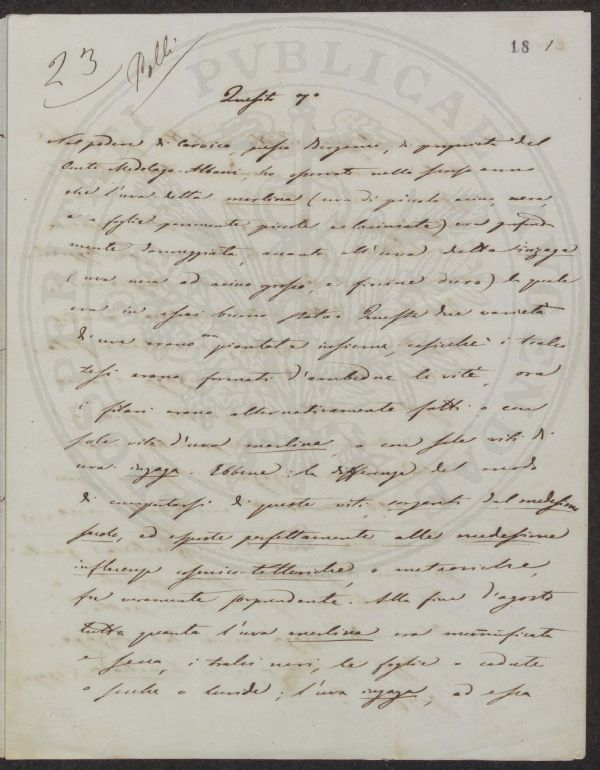 23 Polli
18 1
Quesito 7°
Nel podere di Carvico, presso Bergamo, di proprietà del
Conte Medolago-Albani, ho osservato nello scorso anno
che l'uva detta merlina (uva di piccolo acino, nera
e a foglie parimente piccole e laciniate) era
mente danneggiata, accanto all'uva detta inzaga
(uva nera ad acino grosso, e fiocine duro) la quale
era in assai buono stato. Queste due varietà
di uve erano ora piantate insieme, cosicchè i tralci
tessi erano formati d'ambedue le viti, ora
i filari erano alternativamente fatti o con
sole viti d'uva merlina, o con sole viti di
uva inzaga. Ebbene: la differenza del modo
di comportarsi di queste viti sorgenti dal medesimo
suolo, ed esposte perfettamente alle medesime
influenze cosmico-telluriche, o meteoriche,
fu veramente sorprendente. Alla fine d'agosto
tutta quanta l'uva merlina era mummificata
e secca, i tralci neri, le foglie o cadute
o secche o livide; l'uva inzaga, ad essa